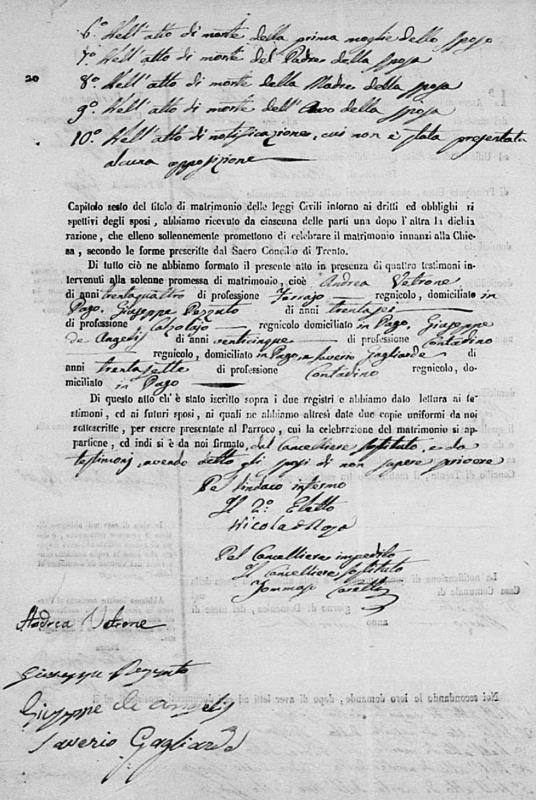 6.º Nell'atto di morte della prima moglie dello sposo
7.º Nell'atto di morte del Padre della sposa
20
8.º Nell'atto di morte della Madre della sposa
9.º Nell'atto di morte dell'Avo della sposa
10.º Nell'atto di notificazione, cui non è stata presentata
alcuna opposizione
Capitolo sesto del titolo di matrimonio delle leggi Civili intorno ai dritti ed obblighi ri
spettivi degli sposi, abbiamo ricevuto da ciascuna delle parti una dopo l'altra la dichia
razione, che elleno sollennemente promettono di celebrare il matrimonio innanzi alla Chie-
sa, secondo le forme prescritte dal Sacro Concilio di Trento.
Di tutto ciò ne abbiamo formato il presente atto in presenza di quattro testimoni in-
tervenuti alla solenne promessa di matrimonio, cioè Andrea Vetrone
di anni trentaquattro di professione Ferrajo regnicolo, domiciliato in
Pago, Giuseppe Pozzuto di anni trentasei
di professione Calzolajo regnicolo domiciliato in Pago, Giuseppe
de Angelis di anni venticinque di professione Contadino
regnicolo, domiciliato in Pago in Saverio Gagliarde di
anni trentasette di professione Contadino regnicolo, do-
miciliato in Pago
Di questo atto ch'è stato iscritto sopra i due registri e abbiamo dato lettura ai te-
stimoni, ed ai futuri sposi, ai quali ne abbiamo altresì date due copie uniformi da noi
sottoscritte, per essere presentate al Parroco, cui la celebrazione del matrimonio si ap-
partiene, ed indi si è da noi firmato, dal Cancelliere Sostituto, e da
testimonj, avendo detto gli sposi di non sapere scrivere
Pel Sindaco infermo
Il 2.º Eletto
Nicola de
Pel Cancelliere impedito
Il Cancelliere Sostituto
Tommaso
Andrea Vetrone
Giuseppe Pozzuto
Giuseppe de Angelis
Saverio Gagliarde